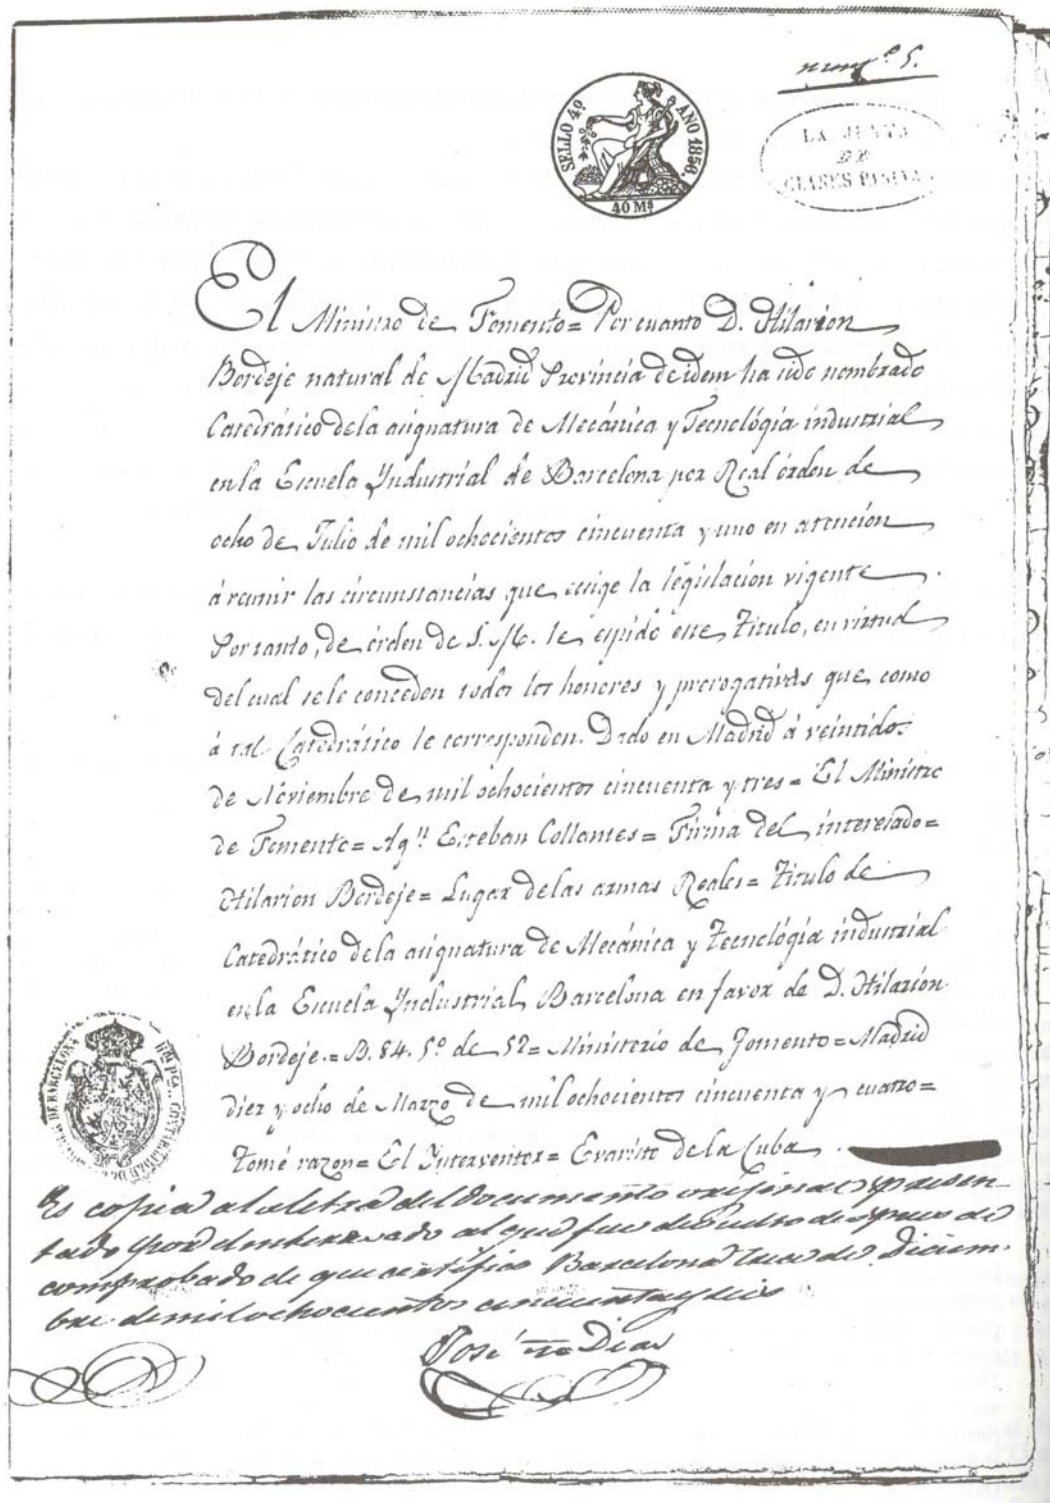 num.º 5.
SELLO 4º AÑO 1856.
40 Mˢ
LA JUNTA
DE
CLASES PASIVAS
El Ministro de Fomento = Por cuanto D. Hilarion
Bordeje natural de Madrid Provincia de idem ha sido nombrado
Catedrático de la asignatura de Mecánica y Tecnológia industrial
en la Escuela Yndustrial de Barcelona por Real órden de
ocho de Julio de mil ochocientos cincuenta y uno en atencion
á reunir las circunstancias que exige la legislacion vigente.
Por tanto, de órden de S. M. le espido este Titulo, en virtud
del cual se le conceden todos los honores y prerogativas que como
á tal Catedrático le corresponden. Dado en Madrid á veintidos
de Noviembre de mil ochocientos cincuenta y tres = El Ministro
de Fomento = Agⁿ Esteban Collantes = Firma del interesado =
Hilarion Bordeje = Lugar de las armas Reales = Titulo de
Catedrático de la asignatura de Mecánica y Tecnológia industrial
en la Escuela Yndustrial, Barcelona en favor de D. Hilarion
Bordeje. = D. 84. 5º de 52 = Ministerio de Fomento = Madrid
diez y ocho de Marzo de mil ochocientos cincuenta y cuatro =
Tomé razon = El Ynterventor = Evaristo de la Cuba.
DE BARCELONA CONTABILIDAD DE
Es copia a la letra del documento original presen-
tado por el interesado al que fue devuelto despues de
comprobado de que certifico Barcelona trece de Diciem-
bre de mil ochocientos cincuenta y seis
José Diaz